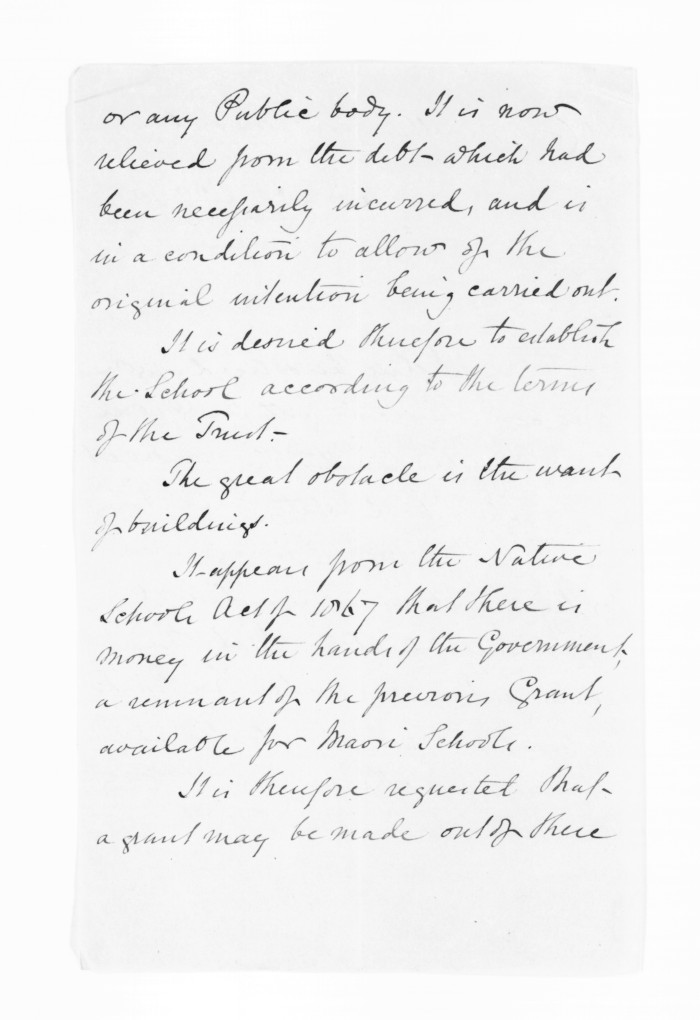 or any Public body. It is now
relieved from the debt which had
been necessarily incurred, and is
in a condition to allow of the
original intention being carried out.
It is desired therefore to establish
the School according to the terms
of the Trust.
The great obstacle is the want
of buildings.
It appears from the Native
Schools Act of 1867 that there is
money in the hands of the Government,
a remnant of the previous Grant,
available for Maori Schools.
It is therefore requested that
a grant may be made out of these